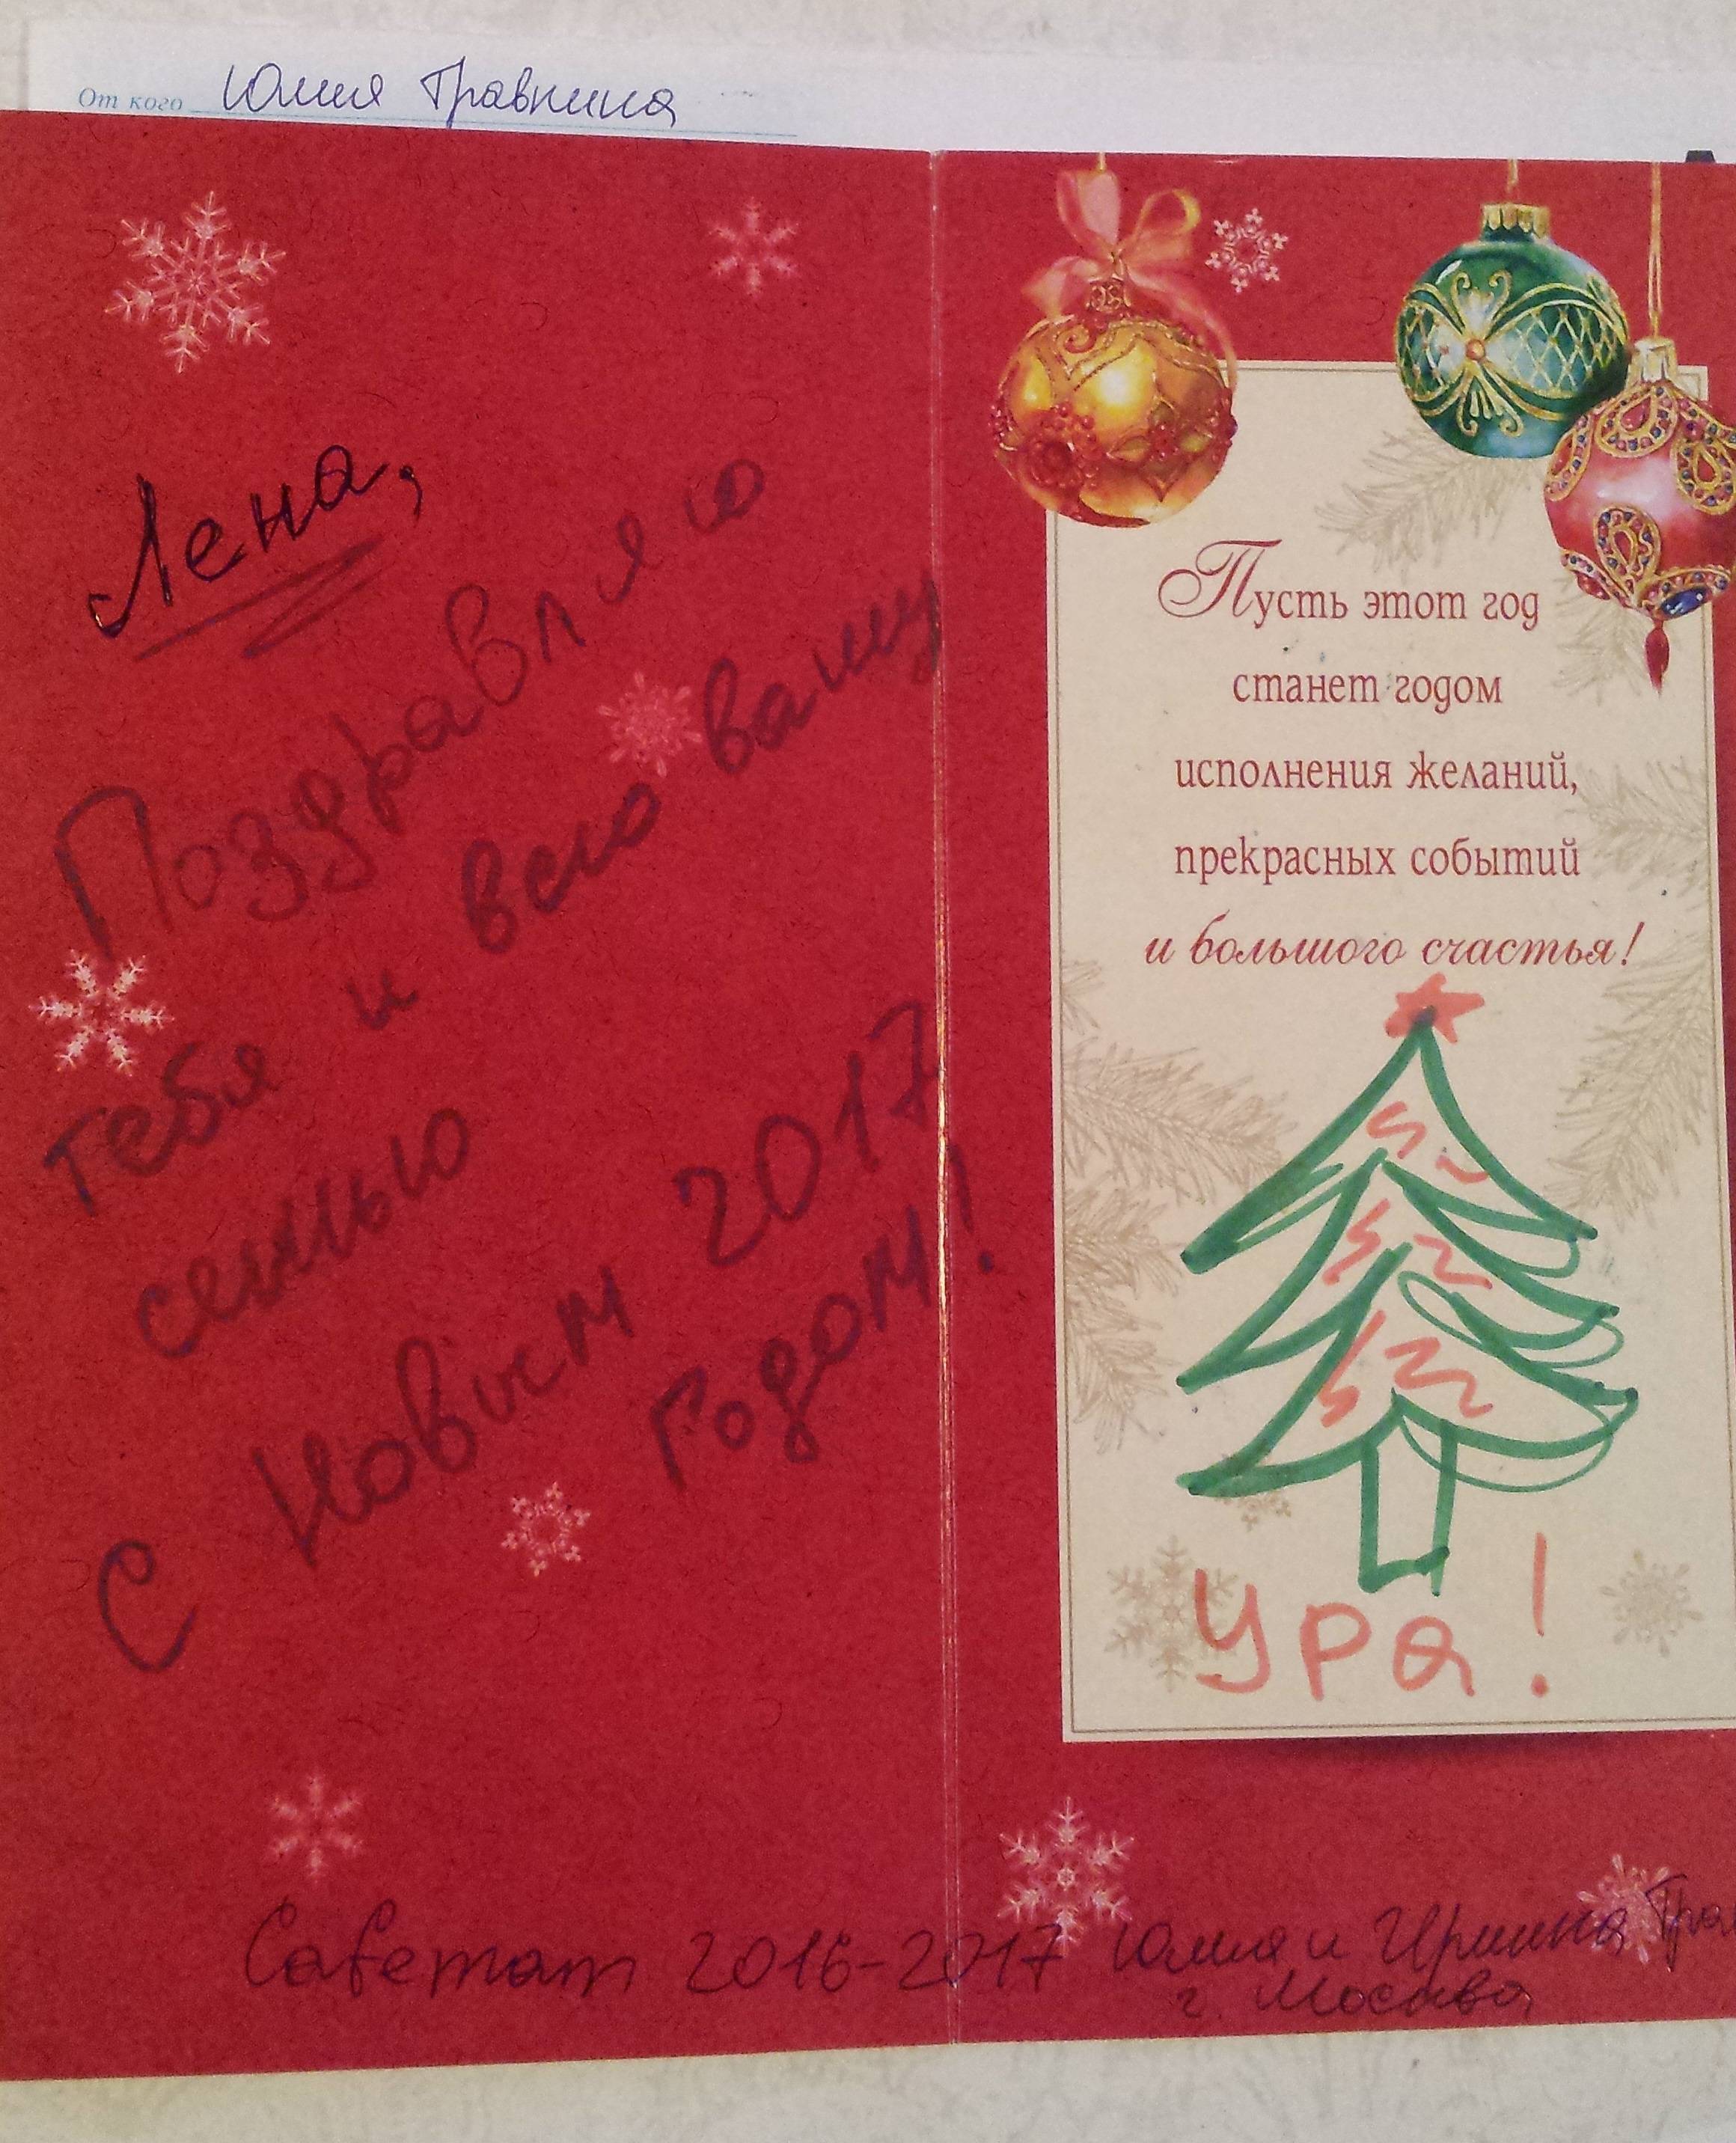 От кого Юлия Травкина
Лена,
Поздравляю
тебя и всю вашу
семью
С Новым 2017
Годом!
Пусть этот год
станет годом
исполнения желаний,
прекрасных событий
и большого счастья!
Ура!
Cafemam 2016-2017 Юлия и Ирина Тра
г. Москва